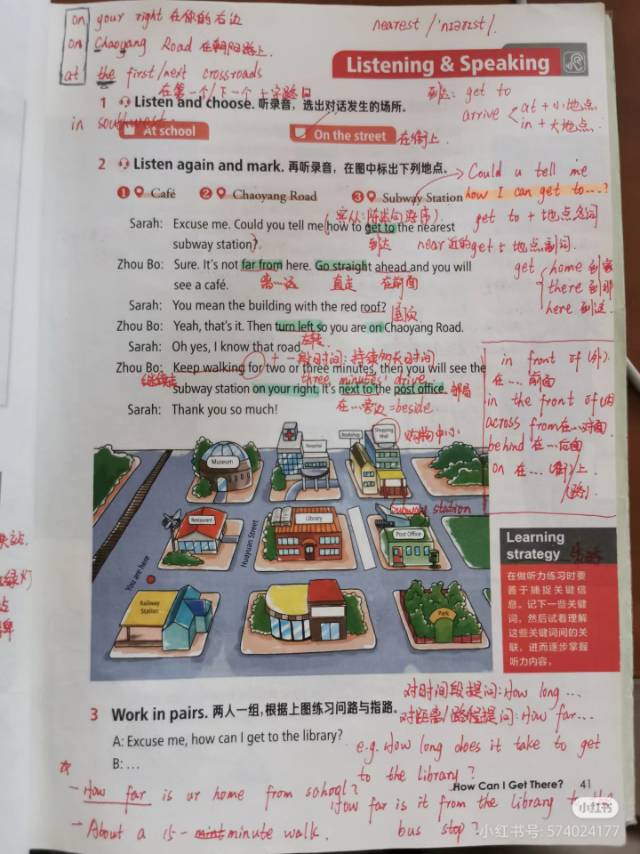 on your right 在你的右边
on Chaoyang Road 在朝阳路上.
at the first/next crossroads
在第一个/下一个十字路口
in southwest
nearest /'nɪərɪst/.
Listening & Speaking
到达: get to
arrive < at + 小地点
in + 大地点.
1 Listen and choose. 听录音，选出对话发生的场所。
At school
On the street
在街上
2 Listen again and mark. 再听录音，在图中标出下列地点。
Could u tell me
how I can get to...?
get to + 地点名词
get + 地点副词.
get < home 到家
there 到那
here 到这
1 Café
2 Chaoyang Road
3 Subway Station
Sarah: Excuse me. Could you tell me how to get to the nearest
到达 near 近的
subway station?
Zhou Bo: Sure. It's not far from here. Go straight ahead and you will
直走 在前面
see a café.
Sarah: You mean the building with the red roof?
屋顶
Zhou Bo: Yeah, that's it. Then turn left so you are on Chaoyang Road.
左转
Sarah: Oh yes, I know that road.
+ 一段时间: 持续多长时间
Zhou Bo: Keep walking for two or three minutes, then you will see the
继续走 three minutes' drive
subway station on your right. It's next to the post office.
邮局
在...旁边 = beside
Sarah: Thank you so much!
in front of (外).
在... 前面
in the front of (内)
across from 在...对面
behind 在...后面
on 在... (街) 上
(路)
购物中心
Museum
Hospital
Bookshop
Shopping Mall
subway station
Restaurant
Library
Post Office
Huayuan Street
You are here
Railway Station
Park
Learning
strategy 策略
在做听力练习时要
善于捕捉关键信
息。记下一些关键
词，然后试着理解
这些关键词间的关
联，进而逐步掌握
听力内容。
3 Work in pairs. 两人一组，根据上图练习问路与指路。
A: Excuse me, how can I get to the library?
B: ...
对时间段提问: How long ...
对距离/路程提问: How far...
e.g. How long does it take to get
to the library?
How Can I Get There? 41
- How far is ur home from school?
How far is it from the library to the
bus stop?
- About a 15-minute walk.
小红书
小红书号: 574024177